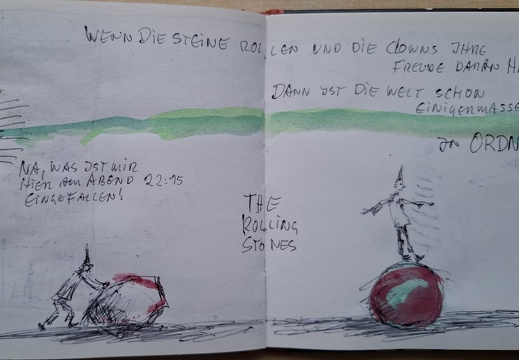 WENN DIE STEINE ROLLEN UND DIE CLOWNS IHRE
FREUDE DARAN HA
DANN IST DIE WELT SCHON
EINIGERMASSE
IN ORDN
NA, WAS IST MIR
HIER AM ABEND 22:15
EINGEFALLEN!
THE
ROLLING
STONES